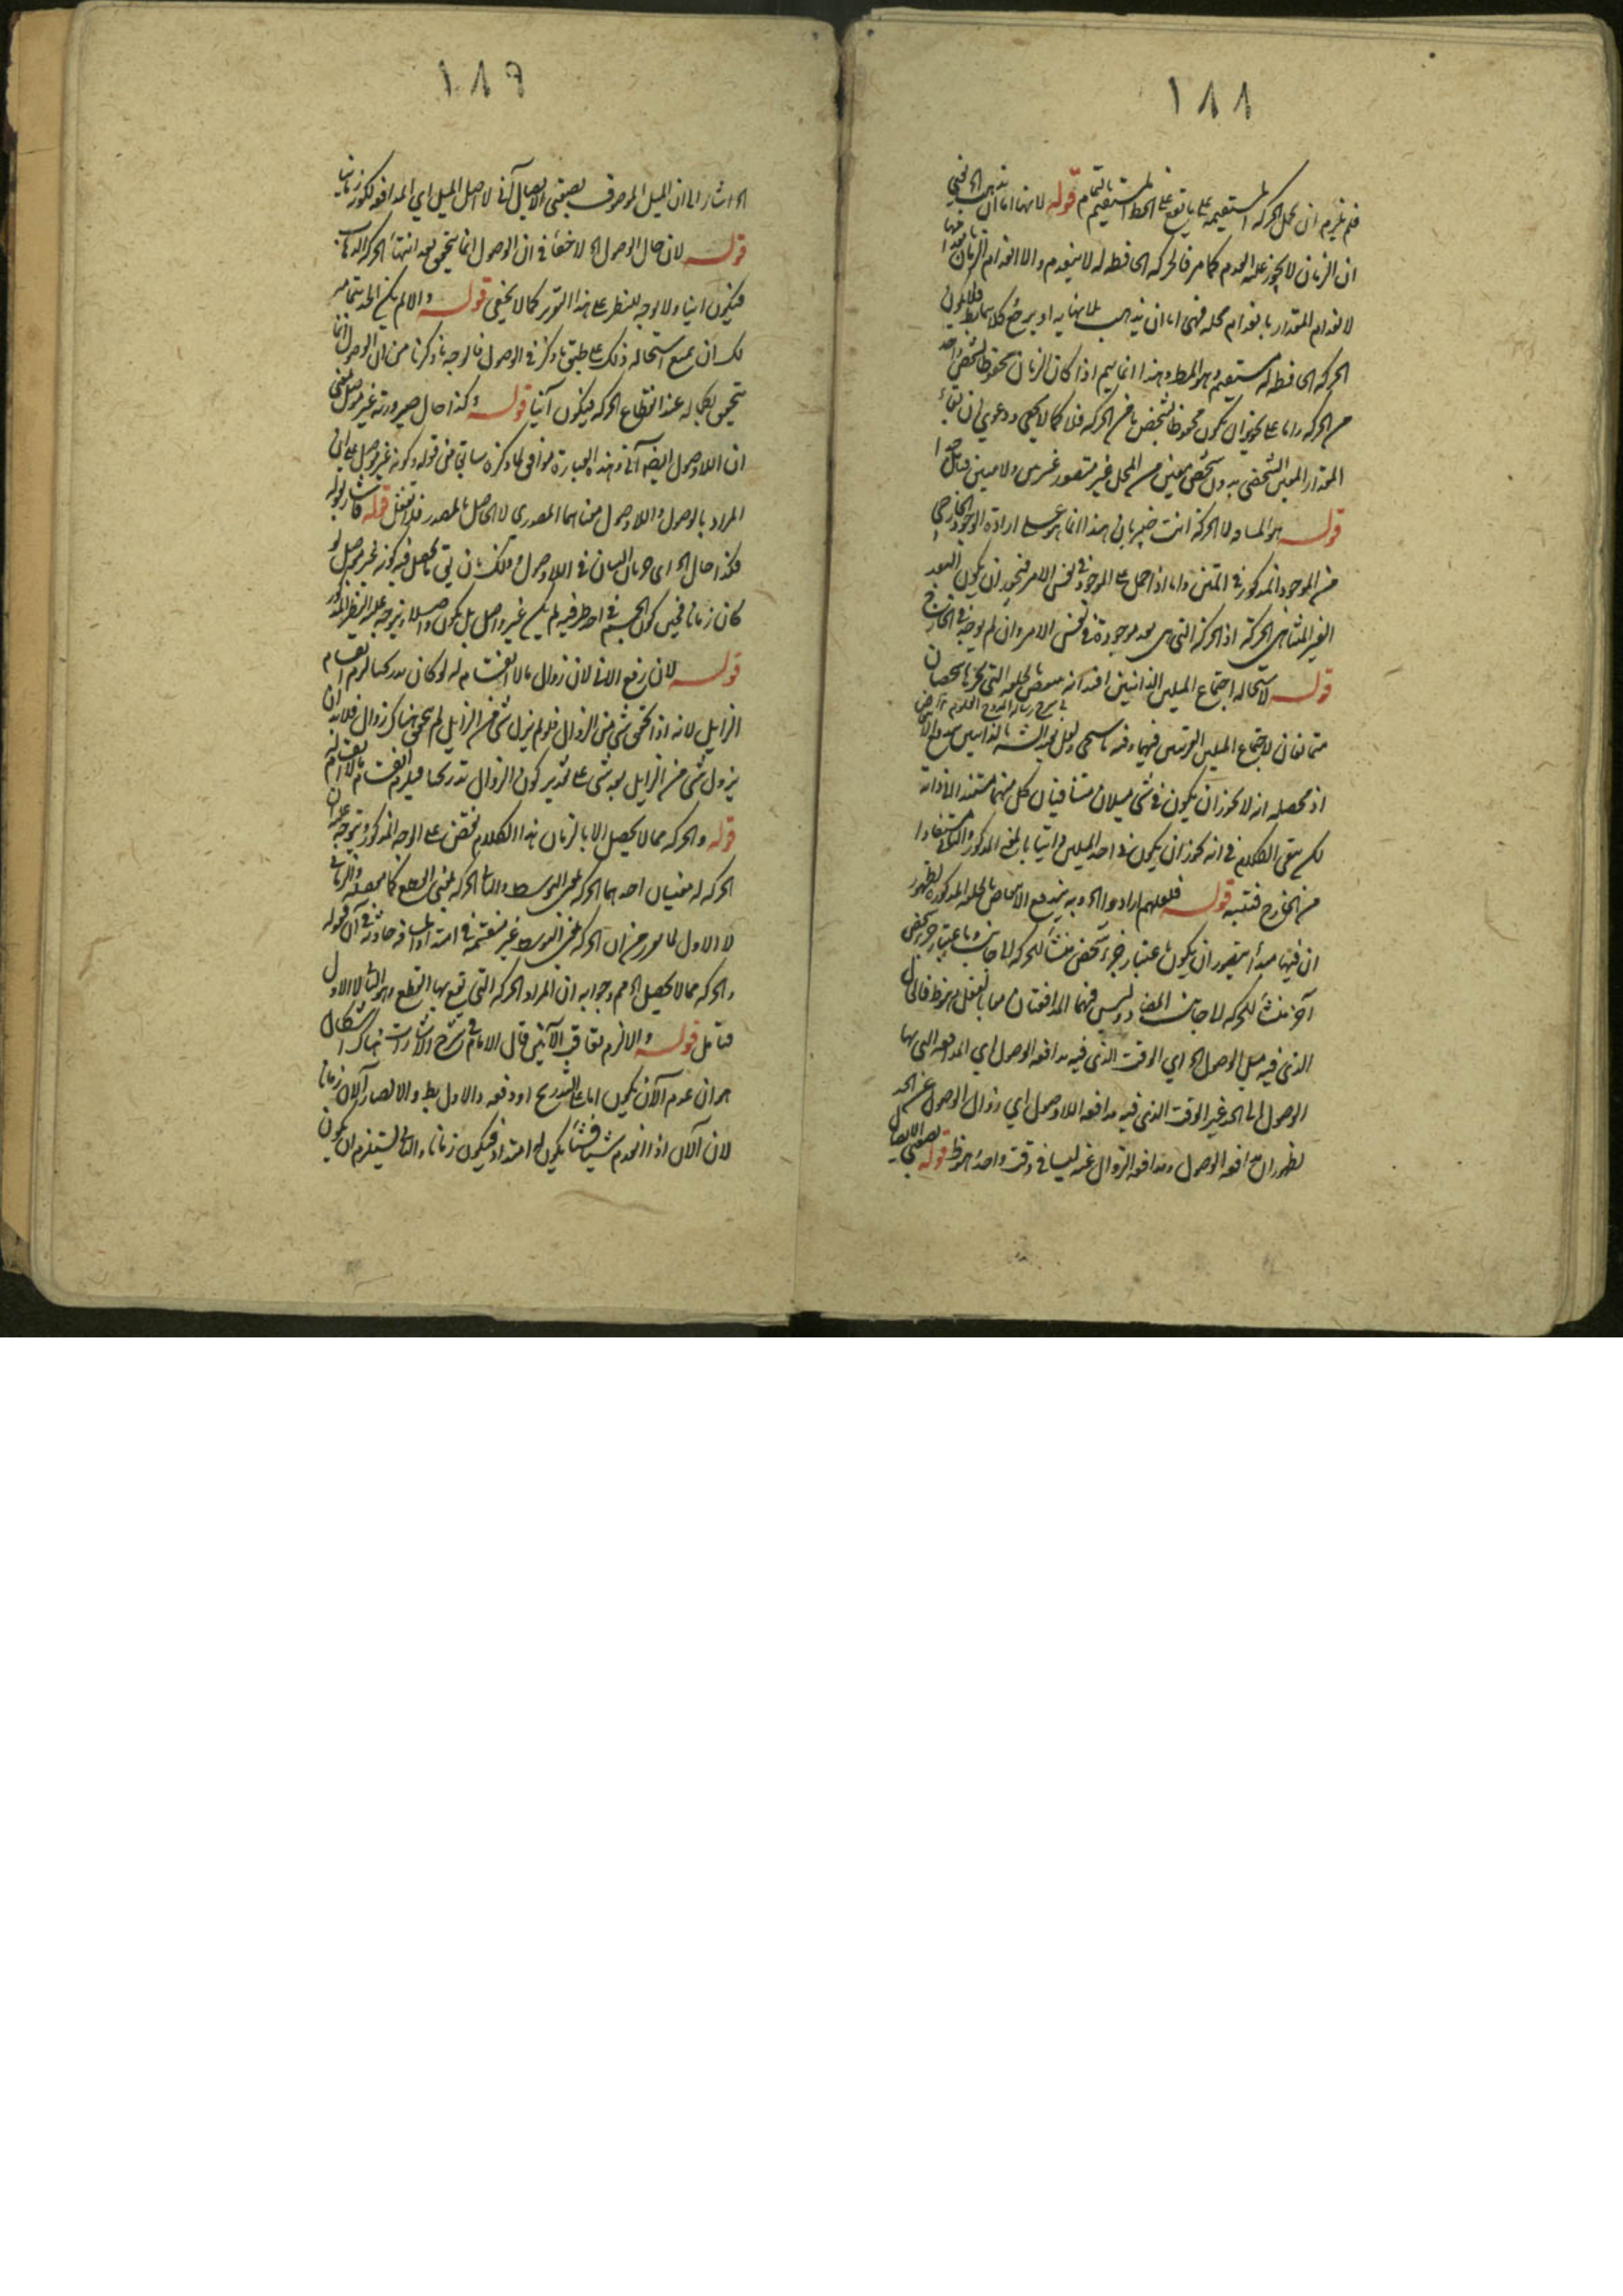 ١٨٨
فلم يلزم ان تحمل الحركة المستقيمة على ما يقع على الخط المستقيم قوله لانها اما ان تذهب الخ
ان الزمان لا يجوز عليه العدم كما مر فالحركة الحافظة له لا ينعدم والا انعدم الزمان
لانعدام المقدار بانعدام محله فهي اما ان يذهب بلا نهاية او يرجع كلاهما بط فلا يكون
الحركة الحافظة له مستقيمة وهو المط وهذا انما يتم اذا كان الزمان محفوظا بشخص واحد
من الحركة واما على تجويز ان يكون محفوظا بشخص ما من الحركة فلا كما لا يخفى ودعوى ان بقاء
المقدار المعين الشخصي بدون شخص معين من المحل غير متصور غير بين ولا مبين فتأمل
قوله هو المسافة لا الحركة انت خبير بان هذا انما هو على ارادة الوجود الخارجي
من الموجود المذكور في المتن واما اذا حمل على الموجود في نفس الامر فيجوز ان يكون البعد
الغير المتناهي الحركة اذ الحركة التي هي بعد موجودة في نفس الامر وان لم يوجد في الخارج
قوله لاستحالة اجتماع الميلين الذاتيين
متمانعان لاجتماع الميلين
اذ محصله انه لا يجوز ان يكون في شيء ميلان متنافيان كل منهما مستند الى ذاته
لكن يبقى الكلام في انه يجوز ان يكون احد الميلين ذاتيا بالمعنى المذكور والثاني مستفادا
من الخارج فتنبه قوله فلعلهم ارادوا الخ وبه يندفع الانتقاض بالحلقة المذكورة لظهور
ان فيها مبدأ يتصور ان يكون باعتبار جزء تحقق منشأ للحركة الى جانب وباعتبار جزء تحقق
آخر منشأ للحركة الى جانب المضاد وليس فيهما المدافعتان معا بالفعل وهو ظ قال
الذي فيه ميل الوصول الخ اي الوقت الذي فيه مدافعة الوصول اي المدافعة التي بها
الوصول الى الحد غير الوقت الذي فيه مدافعة اللاوصول اي زوال الوصول عن الحد
لظهور ان مدافعة الوصول ومدافعة الزوال عنه ليسا في وقت واحد وهو ظ قوله بصفتي الايصال
١٨٩
الخ اشار الى ان الميل الموصوف بصفتي الايصال آني لا اصل الميل اي المدافعة لكونه زمانيا
قوله لان حال الوصول الخ لا خفاء في ان الوصول انما يتحقق بعد انتهاء الحركة
فيكون آنيا ولا وجه للنظر على هذا التقرير كما لا يخفى قوله والا لم يكن الحد بتمامه
لك ان تمنع استحالة ذلك على طبق ما ذكر في الوصول فالوجه ما ذكرنا من ان الوصول انما
يتحقق بكماله عند انقطاع الحركة فيكون آنيا قوله وكذا حال صيرورته غير موصل
ان اللاوصول ايضا آني وهذه العبارة موافق لما ذكره سابقا من قوله وكونه غير موصل
المراد بالوصول واللاوصول معناهما المصدري لا الحاصل بالمصدر فلا تغفل قوله
فكذا حال الخ اي جريان البيان في اللاوصول وذلك بان يق ما يحصل فيه كونه غير موصل لو
كان زمانا فحين كون الجسم في احد طرفيه لم يكن غير واصل بل يكون واصلا ويتوجه عليه النظر المذكور
قوله لان رفع الآني لان زوال ما لا انقسام له لو كان تدريجيا لزم انقسام
الزايل لانه اذا تحقق شيء من الزوال فلو لم يزل شيء من الزايل لم يتحقق هناك زوال فلا بد ان
يزول شيء من الزايل بعد شيء على تقدير كون الزوال تدريجيا فيلزم انقسام ما لا انقسام له
قوله والحركة مما لا يحصل الا بالزمان هذا الكلام نقض على الوجه المذكور ويتوجه عليه ان
الحركة له معنيان احدهما الحركة بمعنى التوسط والثاني الحركة بمعنى القطع كما والزماني
لا الاول لما مر من ان الحركة بمعنى التوسط غير منقسمة في امتداد المسافة حادثة في آن قوله
والحركة مما لا يحصل الخ مم وجوابه ان المراد الحركة التي يقع بها القطع وهو الثاني لا الاول
فتأمل قوله والا لزم تعاقب الآنين قال الامام في شرح الاشارات هناك اشكال
هو ان عدم الآن يكون اما على التدريج او دفعة والاول بط والا لصار الآن زمانا
لان الآن اذا انعدم شيئا فشيئا يكون له امتداد فيكون زمانا والثاني يستلزم ان يكون